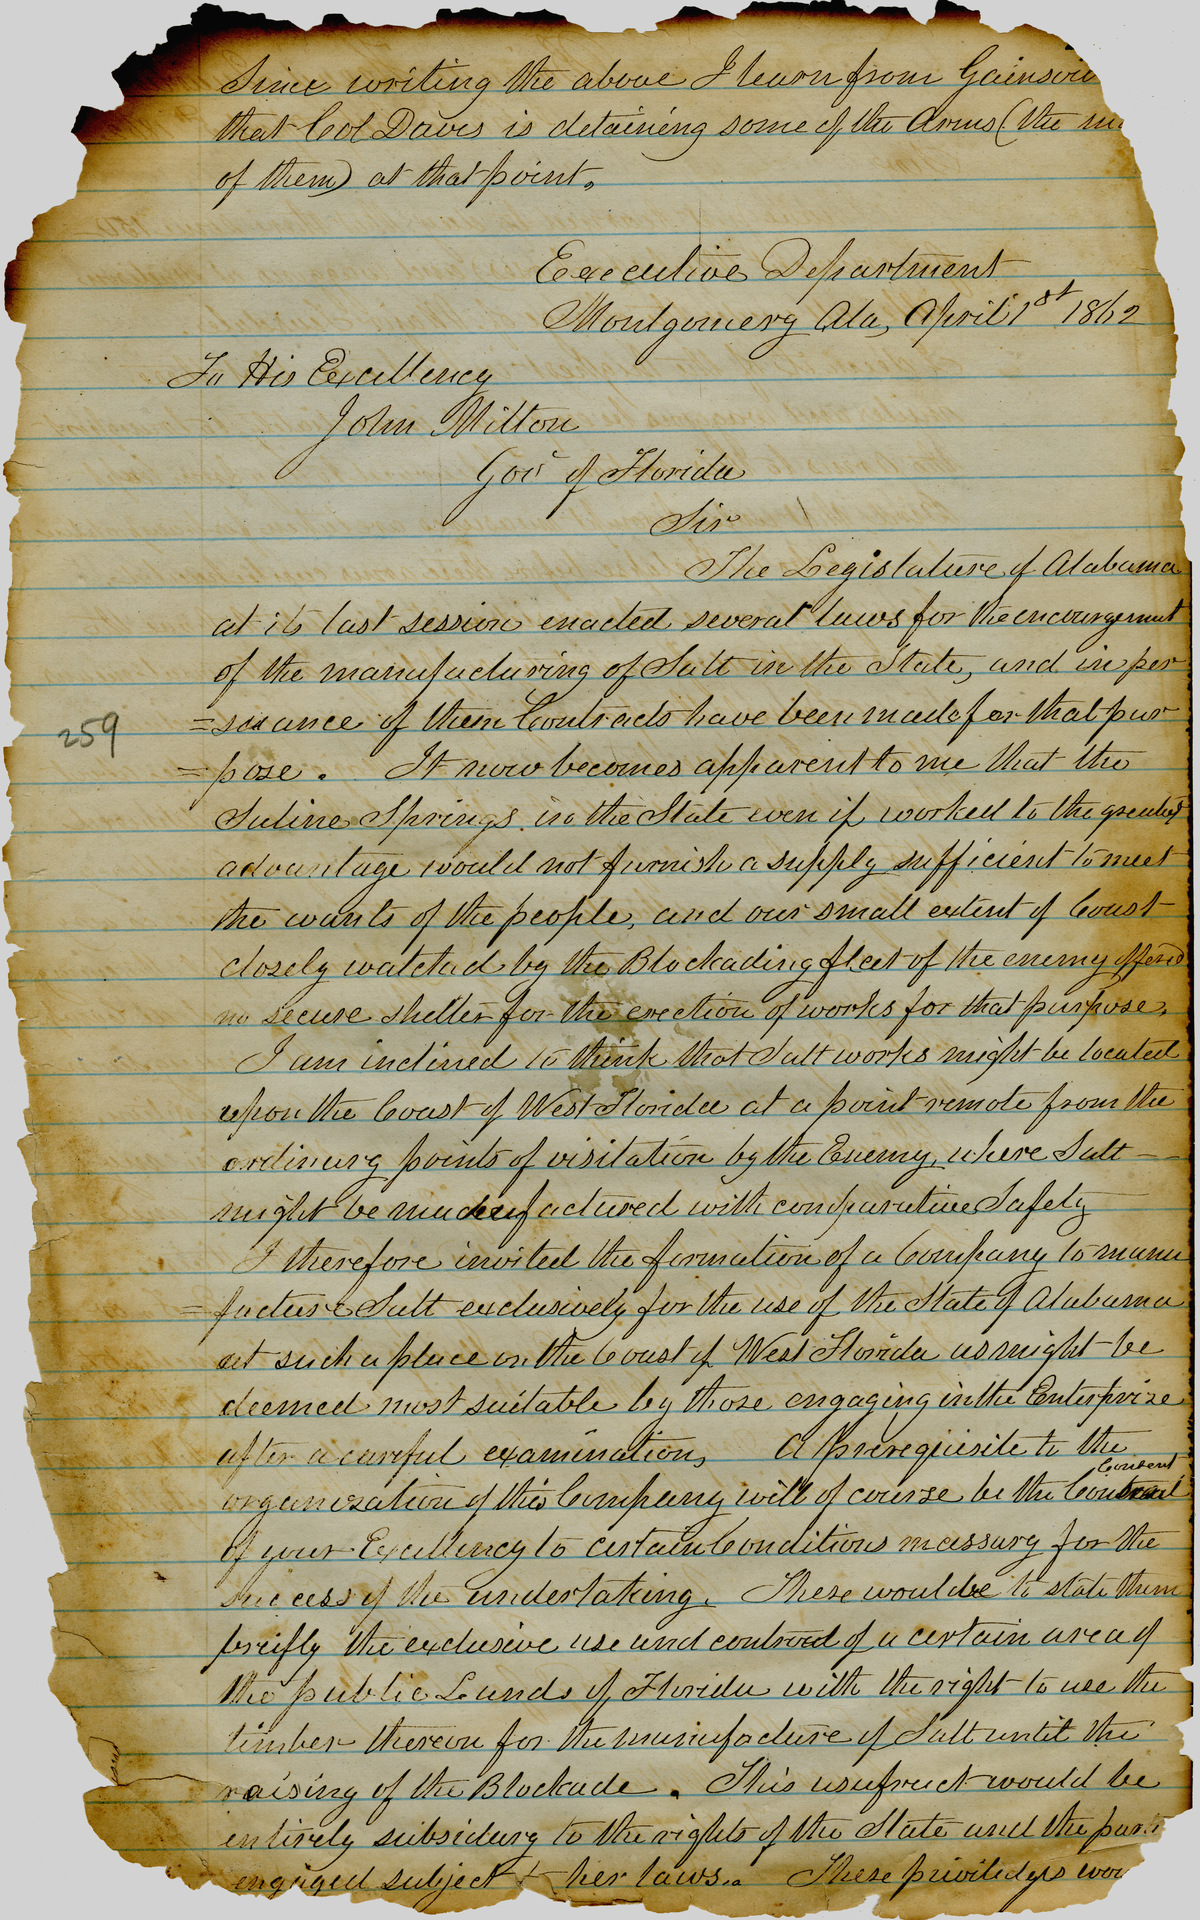 Since writing the above I learn from Gainsvi
that Col Davis is detaining some of the Arms (the
of them) at that point.
Executive Department
Montgomery Ala, April 1st 1862
To His Excellency
John Milton
Gov of Florida
Sir
The Legislature of Alabama
at its last session enacted several laws for the encourgement
of the manufacturing of Salt in the State, and in per
=suance of them Contracts have been made for that pur
=pose. It now becomes apparent to me that the
Saline Springs in the State even if worked to the greatest
advantage would not furnish a supply sufficient to meet
the wants of the people, and our small extent of Coast
closely watched by the Blockading fleet of the enemy offered
no secure shelter for the erection of works for that purpose.
I am inclined to think that Salt works might be located
upon the Coast of West Florida at a point remote from the
ordinary points of visitation by the Enemy, where Salt
might be manufactured with comparative Safety
I therefore invited the formation of a Company to manu
=facture Salt exclusively for the use of the State of Alabama
at such a place on the Coast of West Florida as might be
deemed most suitable by those engaging in the Enterprize
after a careful examination, A prerequisite to the
Consent
organization of this Company will of course be the
of your Excellency to certain Conditions necessary for the
success of the undertaking. These would be to state them
breifly the exclusive use and controul of a certain area of
the public Lands of Florida with the right to use the
timber thereon for the manufacture of Salt until the
raising of the Blockade. This usufruct would be
entirely subsidary to the rights of the State and the parti
engaged subject to her laws. These priviledges wou
259